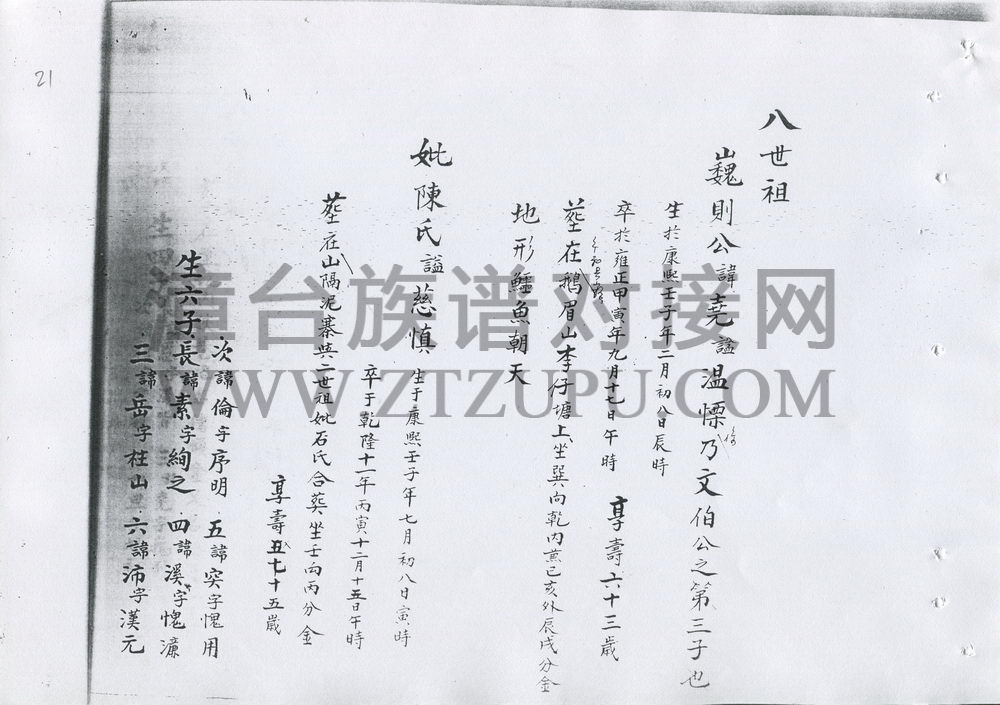 21
八世祖
巍則公諱堯謚温慄乃文伯公之第三子也
生於康熙壬子年二月初八日辰時
卒於雍正甲寅年九月十七日午時 享壽六十三歲
塟在鵝眉山李仔塘上坐巽向乾内兼已亥外辰戌分金
地形鱷魚朝天
妣陳氏謚慈慎 生于康熙壬子年七月初八日寅時
卒于乾隆十一年丙寅十二月十五日午時
塟在山隔泥寨與二世祖妣石氏合葬坐壬向丙分金
享壽七十五歲
次諱倫字序明 五諱突字愧用
生六子長諱素字絢之 四諱溪字愧濂
三諱岳字柱山 六諱沛字漢元
漳台族谱对接网
WWW.ZTZUPU.COM